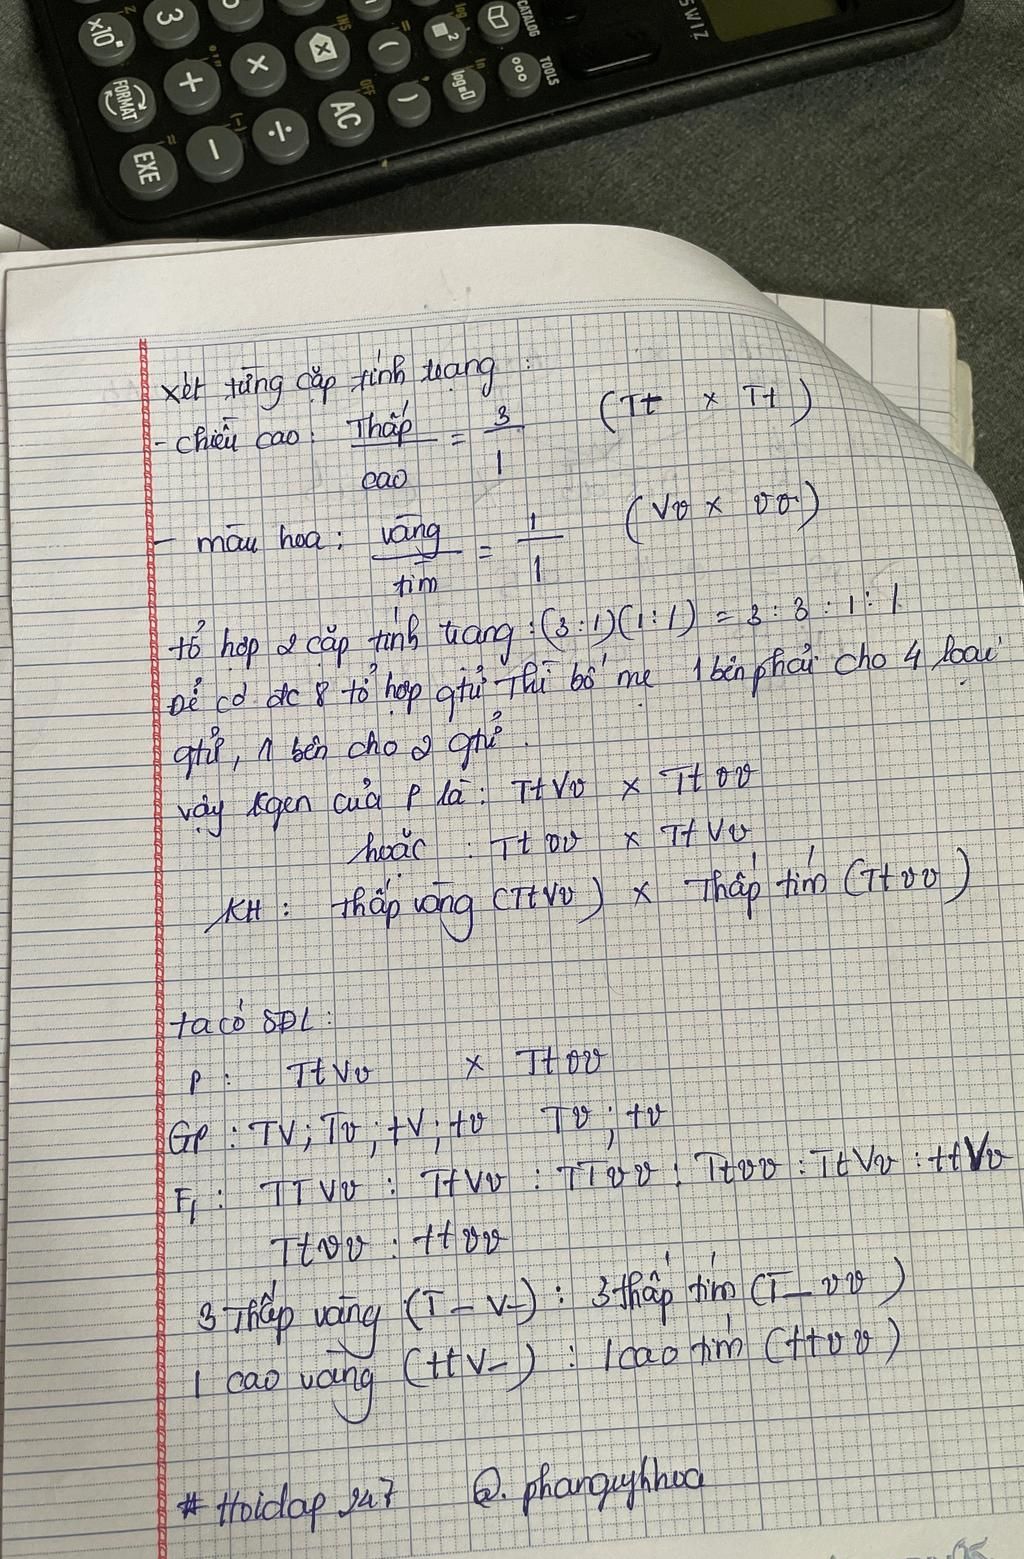 SWIZ
×10ˣ 3 CATALOG
FORMAT + × ⌫ ( ■² TOOLS
EXE − ÷ AC ) log■□ ○○○
OFF
xét từng cặp tính trạng :
- chiều cao : Thấp / cao = 3 / 1 (Tt × Tt)
- màu hoa : vàng / tím = 1 / 1 (Vv × vv)
tổ hợp 2 cặp tính trạng : (3 : 1)(1 : 1) = 3 : 3 : 1 : 1
Để có đc 8 tổ hợp gtử Thì bố mẹ 1 bên phải cho 4 loại
gtử, 1 bên cho 2 gtử.
vậy kgen của P là : TtVv × Ttvv
hoặc : Ttvv × TtVv
KH : thấp vàng (TtVv) × Thấp tím (Ttvv)
ta có SĐL :
P : TtVv × Ttvv
GP : TV ; Tv ; tV ; tv Tv ; tv
F1 : TTVv : TtVv : TTvv : Ttvv : TtVv : ttVv
Ttvv : ttvv
3 Thấp vàng (T – V–) : 3 thấp tím (T– vv)
1 cao vàng (ttV–) : 1 cao tím (ttvv)
# Hoidap 247 @. phanquyhhoa